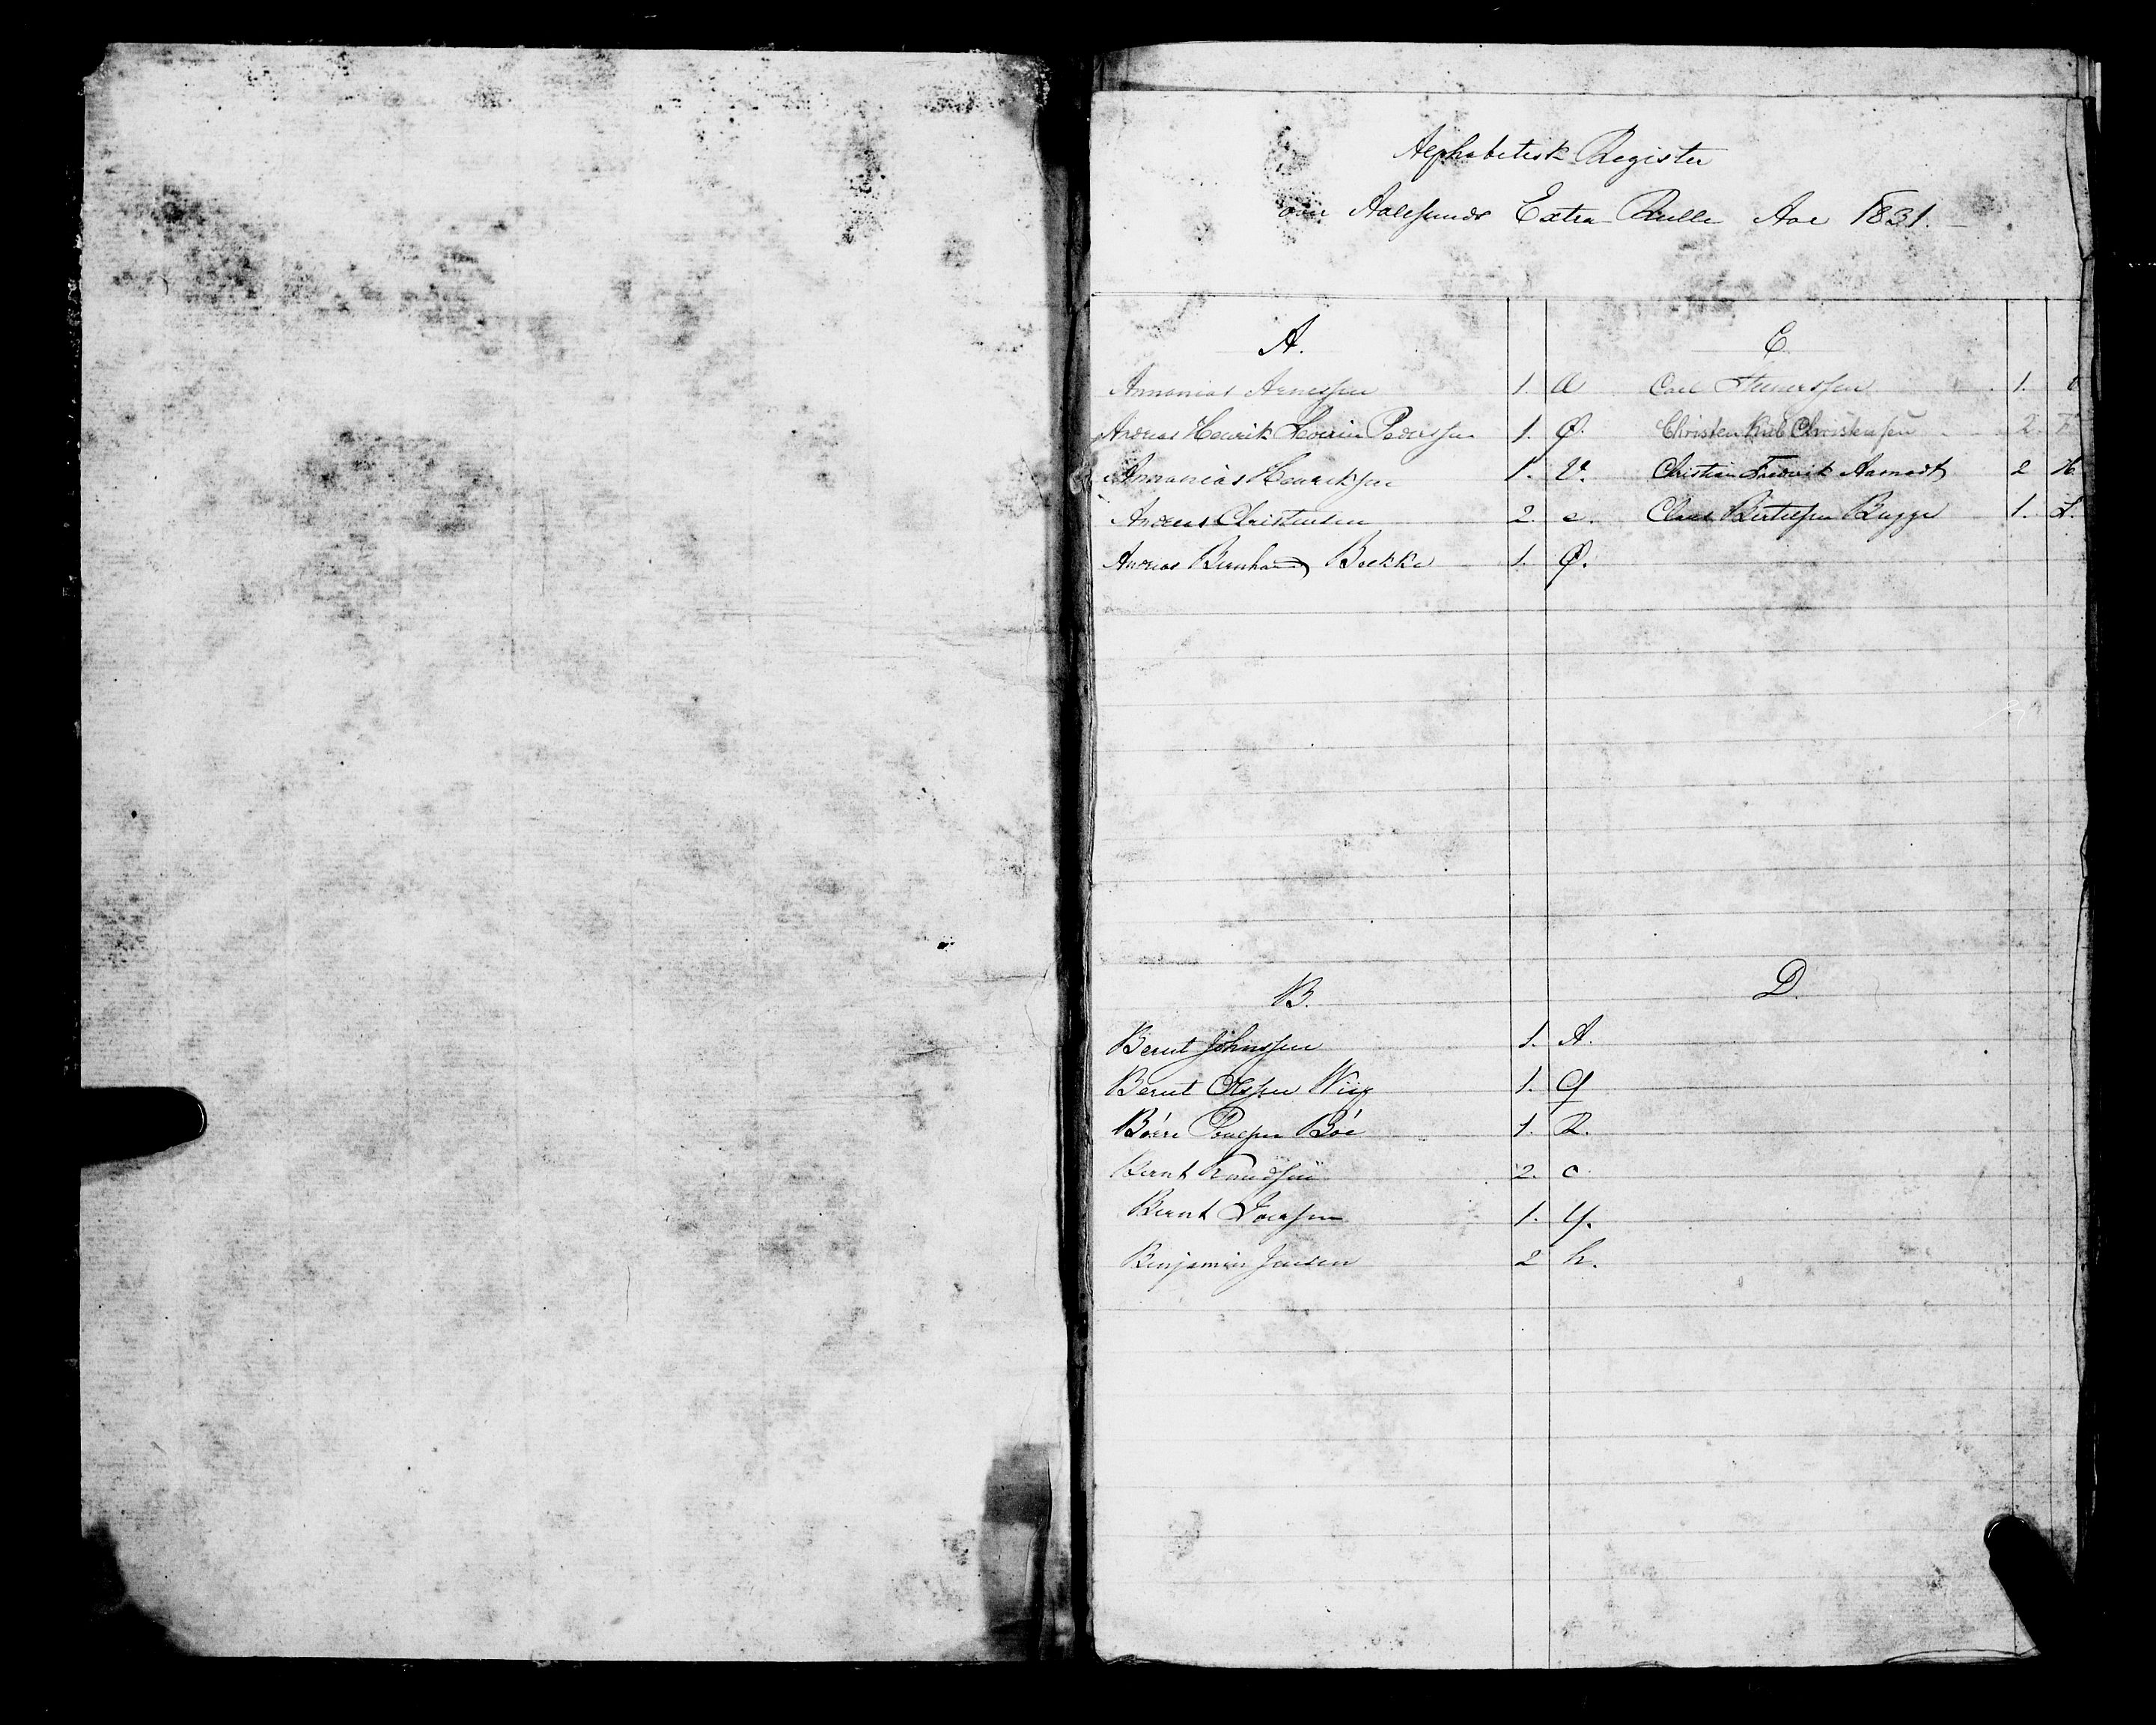 Alphabetisk Register
over Aalesunds Extra Rulle Aar 1831.
A.
Annanias Arnessen 1. a
Andreas Henrik Severin Pederssen 1. Ø.
Annanias Henriksen 1. V.
Andreas Christensen 2. c.
Andreas Bernhard Bakke 1. Ø.
B.
Bernt Johnssen 1. A.
Bernt Olsen Wiig 1. Q
Baare Poulsen Böe 1. R.
Bernt Knudsen 2. c
Bernt Larssen 1. Y.
Benjamin Jensen 2 h.
C.
Carl 1.
Christen Christensen 2. F
Christian Fredrik Aarnodt 2 H.
Claus Bertelsen Bugge 1. L.
D.